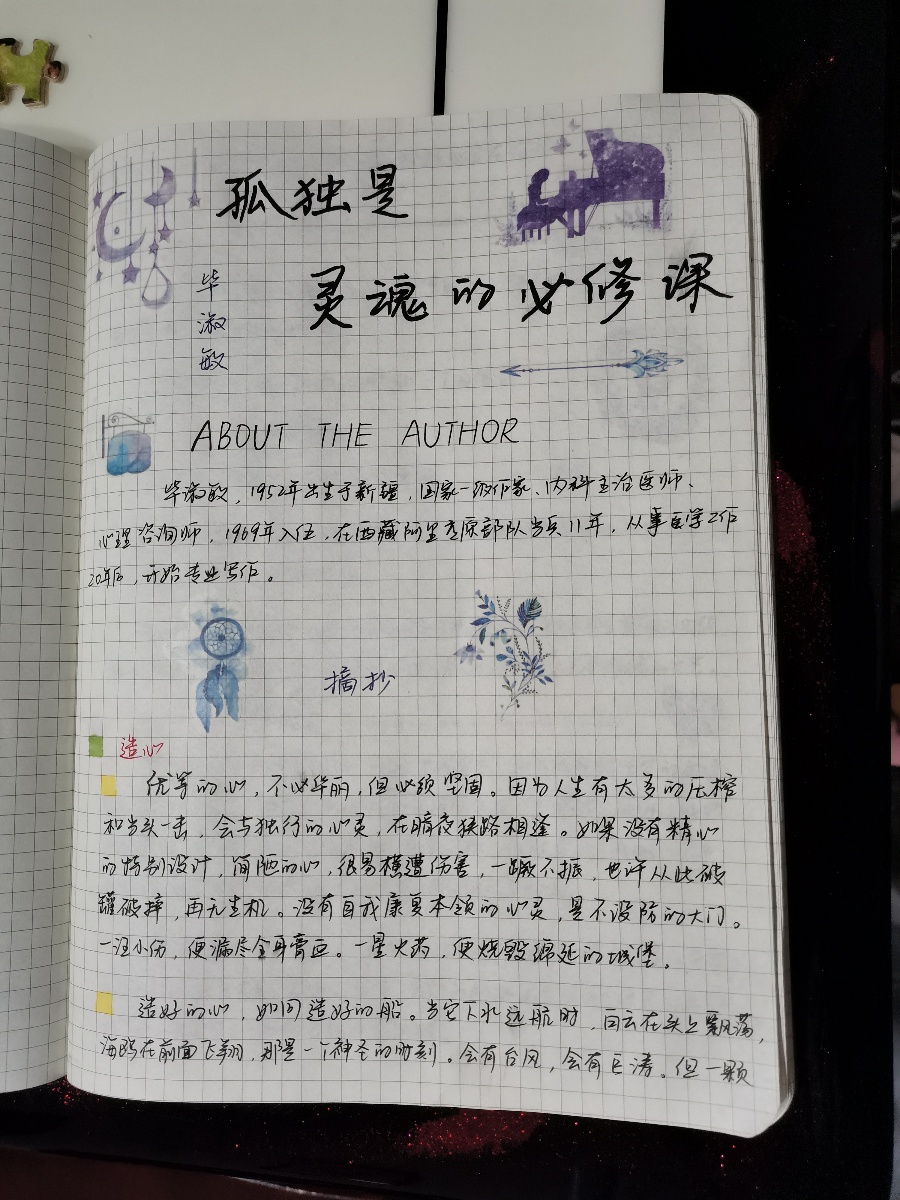 孤独是
灵魂的必修课
毕淑敏
ABOUT THE AUTHOR
毕淑敏，1952年出生于新疆，国家一级作家、内科主治医师、
心理咨询师，1969年入伍，在西藏阿里高原部队当兵11年，从事医学工作
20年后，开始专业写作。
摘抄
造心
优等的心，不必华丽，但必须坚固。因为人生有太多的压榨
和当头一击，会与独行的心灵，在暗夜狭路相逢。如果没有精心
的特别设计，简陋的心，很易横遭伤害，一蹶不振，也许从此破
罐破摔，再无生机。没有自我康复本领的心灵，是不设防的大门。
一汪小伤，便漏尽全身膏血。一星火药，便烧毁绵延的城堡。
造好的心，如同造好的船。当它下水远航时，白云在头上飘荡，
海鸥在前面飞翔，那是一个神圣的时刻。会有台风，会有巨涛。但一颗